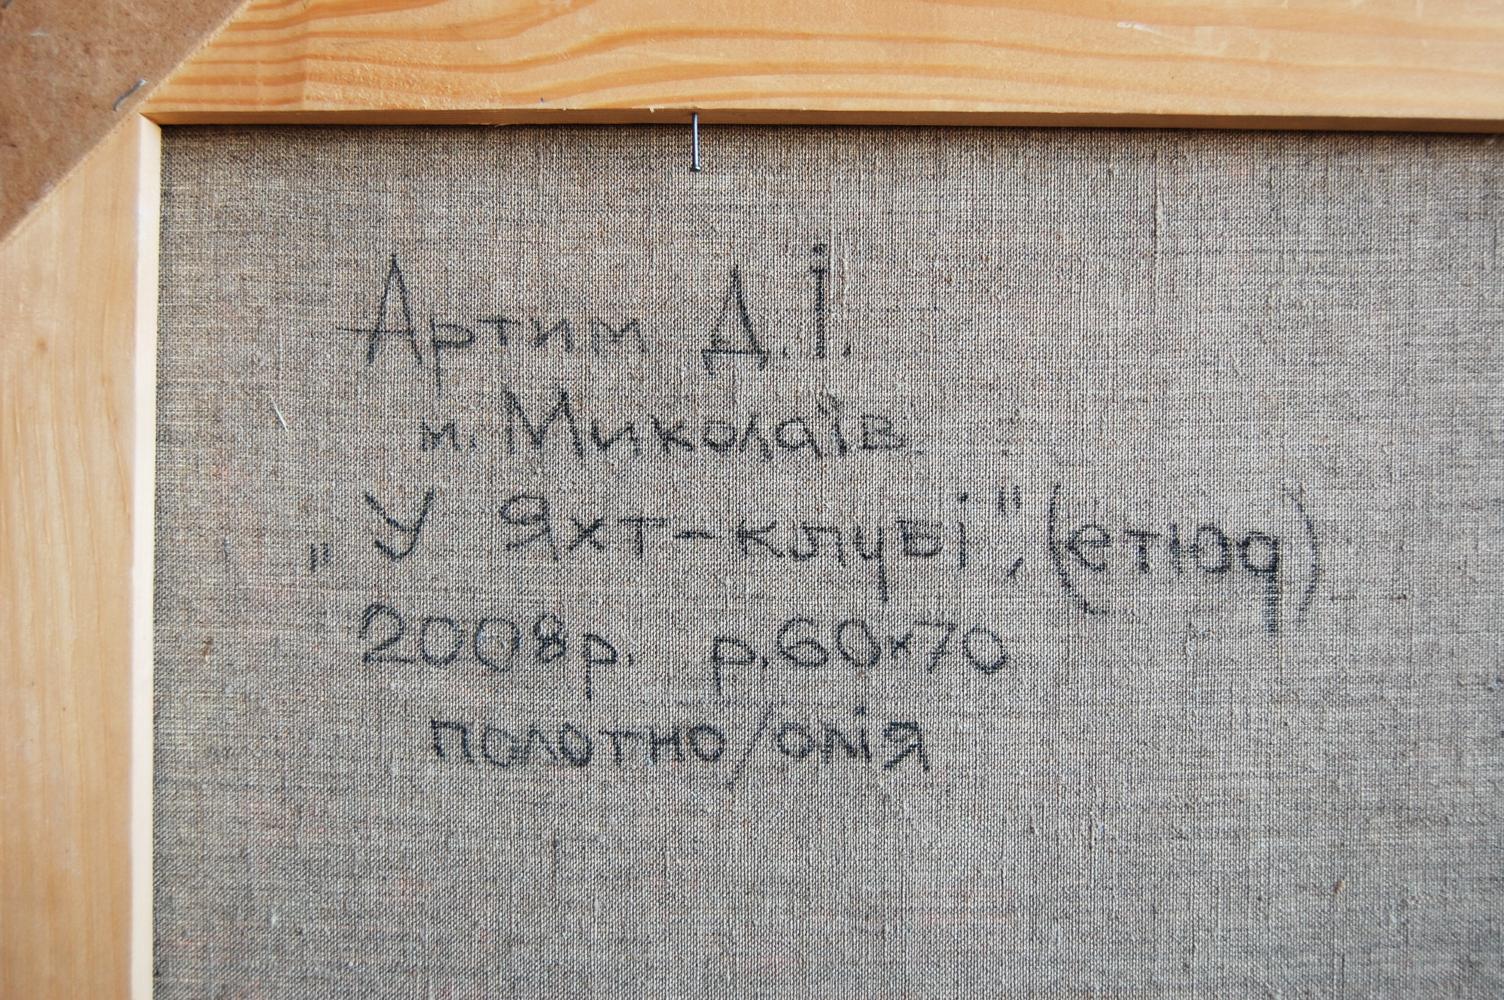 Артим Д.І.
м. Миколаїв
"У Яхт-клубі", (етюд)
2008р. р.60x70
полотно/олія